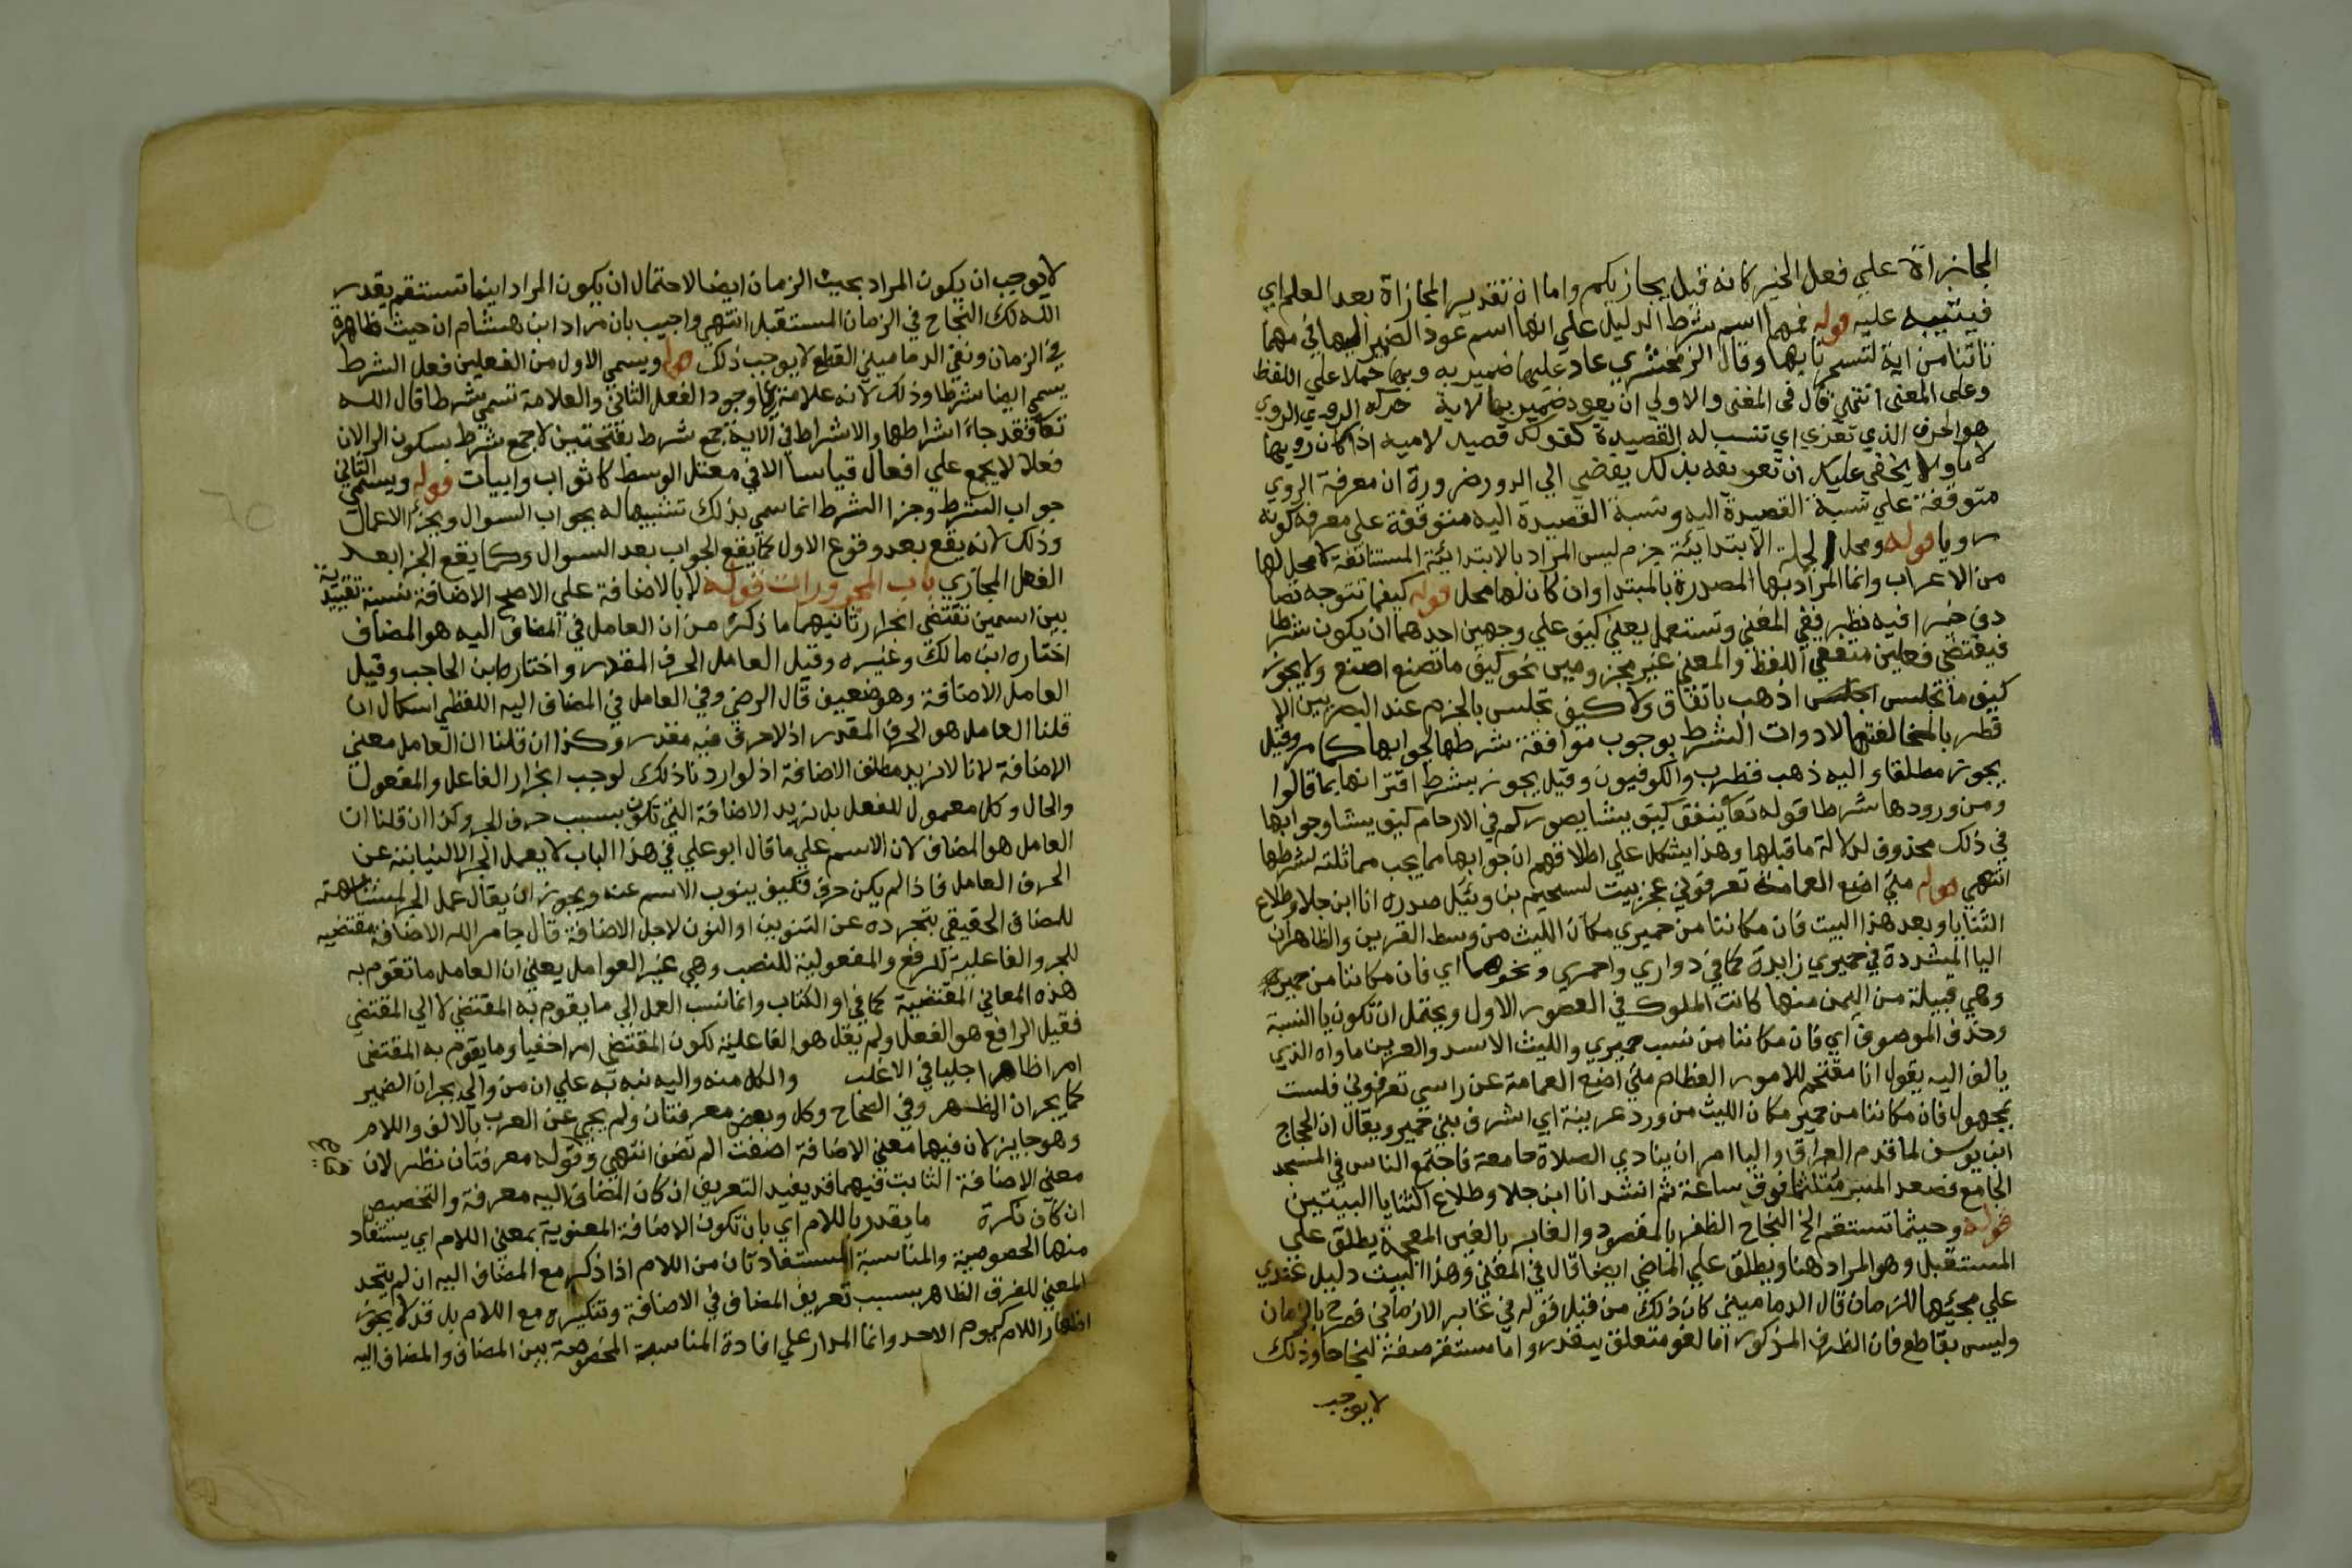 المجازاة علي فعل الخير كانه قيل يجازيكم واما ان تقدير المجازاة بعد العلم اي
فيثيبه عليه قوله فمهما اسم شرط الدليل علي انها اسم عود الضمير اليها في مهما
تاتنا من اية لتسحرنا بها وقال الزمخشري عاد عليها ضمير به وبها حملا علي اللفظ
وعلى المعنى انتهي قال في المغني والاولي ان يعود ضمير بها لاية حركه الروي الروي
هو الحرف الذي تعزي اي تنسب له القصيدة كقولك قصيد لاميه اذا كان رويها
لاما ولا يخفي عليك ان تعريفه بذلك يفضي الي الدور ضرورة ان معرفة الروي
متوقفة علي نسبة القصيدة اليه ونسبة القصيدة اليه متوقفة علي معرفه كونه
رويا قوله ومحل الجلة الابتدائية جزم ليس المراد بالابتدائية المستانفة لا محل لها
من الاعراب وانما المراد بها المصدرة بالمبتدا وان كان لها محل قوله كيفما تتوجه تصا
دف خيرا فيه نظر ففي المغني وتستعمل يعني كيف علي وجهين احدهما ان يكون شرطا
فيقتضي فعلين متفقي اللفظ والمعني غير مجزومين نحو كيف ما تصنع اصنع ولا يجوز
كيف ما تجلس اذهب باتفاق ولا كيف تجلس بالجزم عند البصريين الا
قطرب بالمخالفتها لادوات الشرط بوجوب موافقة شرطها لجوابها كما مر وقيل
يجوز مطلقا واليه ذهب قطرب والكوفيون وقيل يجوز بشرط اقترانها بما قالوا
ومن ورودها شرطا قوله تعا ينفق كيف يشا يصوركم في الارحام كيف يشا وجوابها
في ذلك محذوف لدلالة ما قبلها وهذا يشكل علي اطلاقهم ان جوابها مما يجب مماثلته لشرطها
انتهي قوله متي اضع العمامة تعرفوني عجز بيت لسحيم بن وثيل صدره انا ابن جلا وطلاع
الثنايا وبعد هذا البيت فان مكاننا من حميري مكان الليث من وسط القرين والظاهر ان
اليا المشددة في حميري زايدة كما في دواري واحمري ونحوهما اي فان مكاننا من حمير
وهي قبيلة من اليمن منها كانت الملوك في العصور الاول ويحتمل ان تكون يا النسبة
وحذف الموصوف اي فان مكاننا من نسب حميري والليث الاسد والعرين ماواه الذي
يالف اليه يقول انا مقتحم للامور العظام متي اضع العمامة عن راسي تعرفوني فلست
بمجهول فان مكاننا من حمير مكان الليث من ورد عرينة اي اشرف بني حمير ويقال ان الحجاج
ابن يوسف لما قدم العراق واليا امر ان ينادي الصلاة جامعة فاجتمع الناس في المسجد
الجامع فصعد المنبر متلثما فوقف ساعة ثم انشد انا ابن جلا وطلاع الثنايا البيتين
قوله وحيثما تستقم الخ النجاح الظفر بالمقصود والغابر بالغين المعجمة يطلق علي
المستقبل وهو المراد هنا ويطلق علي الماضي ايضا قال في المغني وهذا البيت دليل عندي
علي مجيئها للزمان قال الدماميني كان ذلك من قبل قوله في غابر الازمان فصرح بالزمان
وليس بقاطع فان الظرف المذكور اما لغو متعلق بيقدر واما مستقر صفة لنجاحا وذلك
لا يوجب
لا يوجب ان يكون المراد بحيث الزمان ايضا لاحتمال ان يكون المراد اينما تستقم يقدر
الله لك النجاح في الزمان المستقبل انتهي واجيب بان مراد ابن هشام ان حيث ظاهرة
في الزمان ونفي الدماميني القطع لا يوجب ذلك قوله ويسمي الاول من الفعلين فعل الشرط
يسمي ايضا شرطا وذلك لانه علامة علي وجود الفعل الثاني والعلامة تسمي شرطا قال الله
تعا فقد جاء اشراطها والاشراط في الاية جمع شرط بفتحتين لا جمع شرط بسكون الرا لان
فعلا لا يجمع علي افعال قياسا الا في معتل الوسط كاثواب وابيات قوله ويسمي الثاني
جواب الشرط وجزا الشرط انما سمي بذلك تشبيها له بجواب السوال وبجزا الاعمال
وذلك لانه يقع بعد وقوع الاول كما يقع الجواب بعد السوال وكما يقع الجزا بعد
الفعل المجازي باب المجرورات قوله لا بالاضافة علي الاصح الاضافة نسبة تقييدية
بين اسمين تقتضي انجرار ثانيهما ما ذكره من ان العامل في المضاف اليه هو المضاف
اختاره ابن مالك وغيره وقيل العامل الحرف المقدر واختاره ابن الحاجب وقيل
العامل الاضافة وهو ضعيف قال الرضي وفي العامل في المضاف اليه اللفظي اشكال ان
قلنا العامل هو الحرف المقدر اذ لا حرف فيه مقدر وكذا ان قلنا ان العامل معني
الاضافة لانا لا نريد مطلق الاضافة اذ لو اردنا ذلك لوجب انجرار الفاعل والمفعول
والحال وكل معمول للفعل بل نريد الاضافة التي تكون بسبب حرف الجر وكذا ان قلنا ان
العامل هو المضاف لان الاسم علي ما قال ابو علي في هذا الباب لا يعمل الجر الا لنيابته عن
الحرف العامل فاذا لم يكن حرف فكيف ينوب الاسم عنه ويجوز ان يقال عمل الجر لمشابهته
للمضاف الحقيقي بتجرده عن التنوين او النون لاجل الاضافة قال جامر الله الاضافة مقتضيه
للجر والفاعلية للرفع والمفعولية للنصب وهي غير العوامل يعني ان العامل ما تقوم به
هذه المعاني المقتضية كما في او الكتاب وانما نسب العمل الي ما يقوم به المقتضي لا الي المقتضي
فقيل الرافع هو الفعل ولم يقل هو الفاعلية لكون المقتضي امرا خفيا وما يقوم به المقتضى
امرا ظاهرا جليا في الاغلب والكل منه واليه نبه به علي ان من والي يجران الضمير
كما يجران الظهر وفي الصحاح وكل وبعض معرفتان ولم يجي عن العرب بالالف واللام
وهو جايز لان فيهما معني الاضافة اضفت ام لم تضف انتهي وقوله معرفتان نظر لان
معني الاضافة الثابت فيهما قد يفيد التعريف ان كان المضاف اليه معرفة والتخصيص
ان كان نكرة ما يقدر باللام اي بان تكون الاضافة المعنوية بمعني اللام اي يستفاد
منها الخصوصية والمناسبة المستفادتان من اللام اذا ذكر مع المضاف اليه ان لم يتحد
المعني للفرق الظاهر بسبب تعريف المضاف في الاضافة وتنكيره مع اللام بل قد لا يجوز
اظهار اللام كيوم الاحد وانما المدار علي افادة المناسبة المخصوصة بين المضاف والمضاف اليه